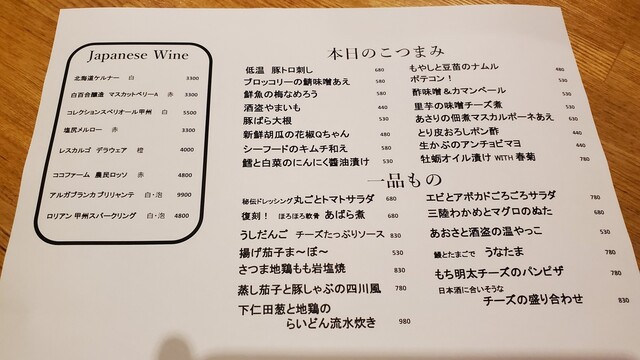 Japanese Wine
北海道ケルナー 白 3300
白百合醸造 マスカットベリーA 赤 3300
コレクションスペリオール甲州 白 5500
塩尻メルロー 赤 3300
レスカルゴ デラウェア 橙 4000
ココファーム 農民ロッソ 赤 4800
アルガブランカ ブリリャンテ 白・泡 9900
ロリアン 甲州スパークリング 白・泡 4800
本日のこつまみ
低温 豚トロ刺し 680
ブロッコリーの鯖味噌あえ 380
鮮魚の梅なめろう 580
酒盗やまいも 440
豚ばら大根 530
新鮮胡瓜の花椒Qちゃん 480
シーフードのキムチ和え 580
鱈と白菜のにんにく醬油漬け 530
もやしと豆苗のナムル 480
ポテコン! 530
酢味噌&カマンベール 530
里芋の味噌チーズ煮 530
あさりの佃煮マスカルポーネあえ 630
とり皮おろしポン酢 440
生かぶのアンチョビマヨ 440
牡蛎オイル漬け WITH 春菊 780
一品もの
秘伝ドレッシング丸ごとトマトサラダ 680
復刻! ほろほろ軟骨 あばら煮 680
うしだんご チーズたっぷりソース 830
揚げ茄子ま～ぼ～ 530
さつま地鶏もも岩塩焼 830
蒸し茄子と豚しゃぶの四川風 780
下仁田葱と地鶏の
らいどん流水炊き 980
エビとアボカドごろごろサラダ 780
三陸わかめとマグロのぬた 680
あおさと酒盗の温やっこ 530
鰻とたまごで うなたま 780
もち明太チーズのパンピザ 780
日本酒に合いそうな
チーズの盛り合わせ 830